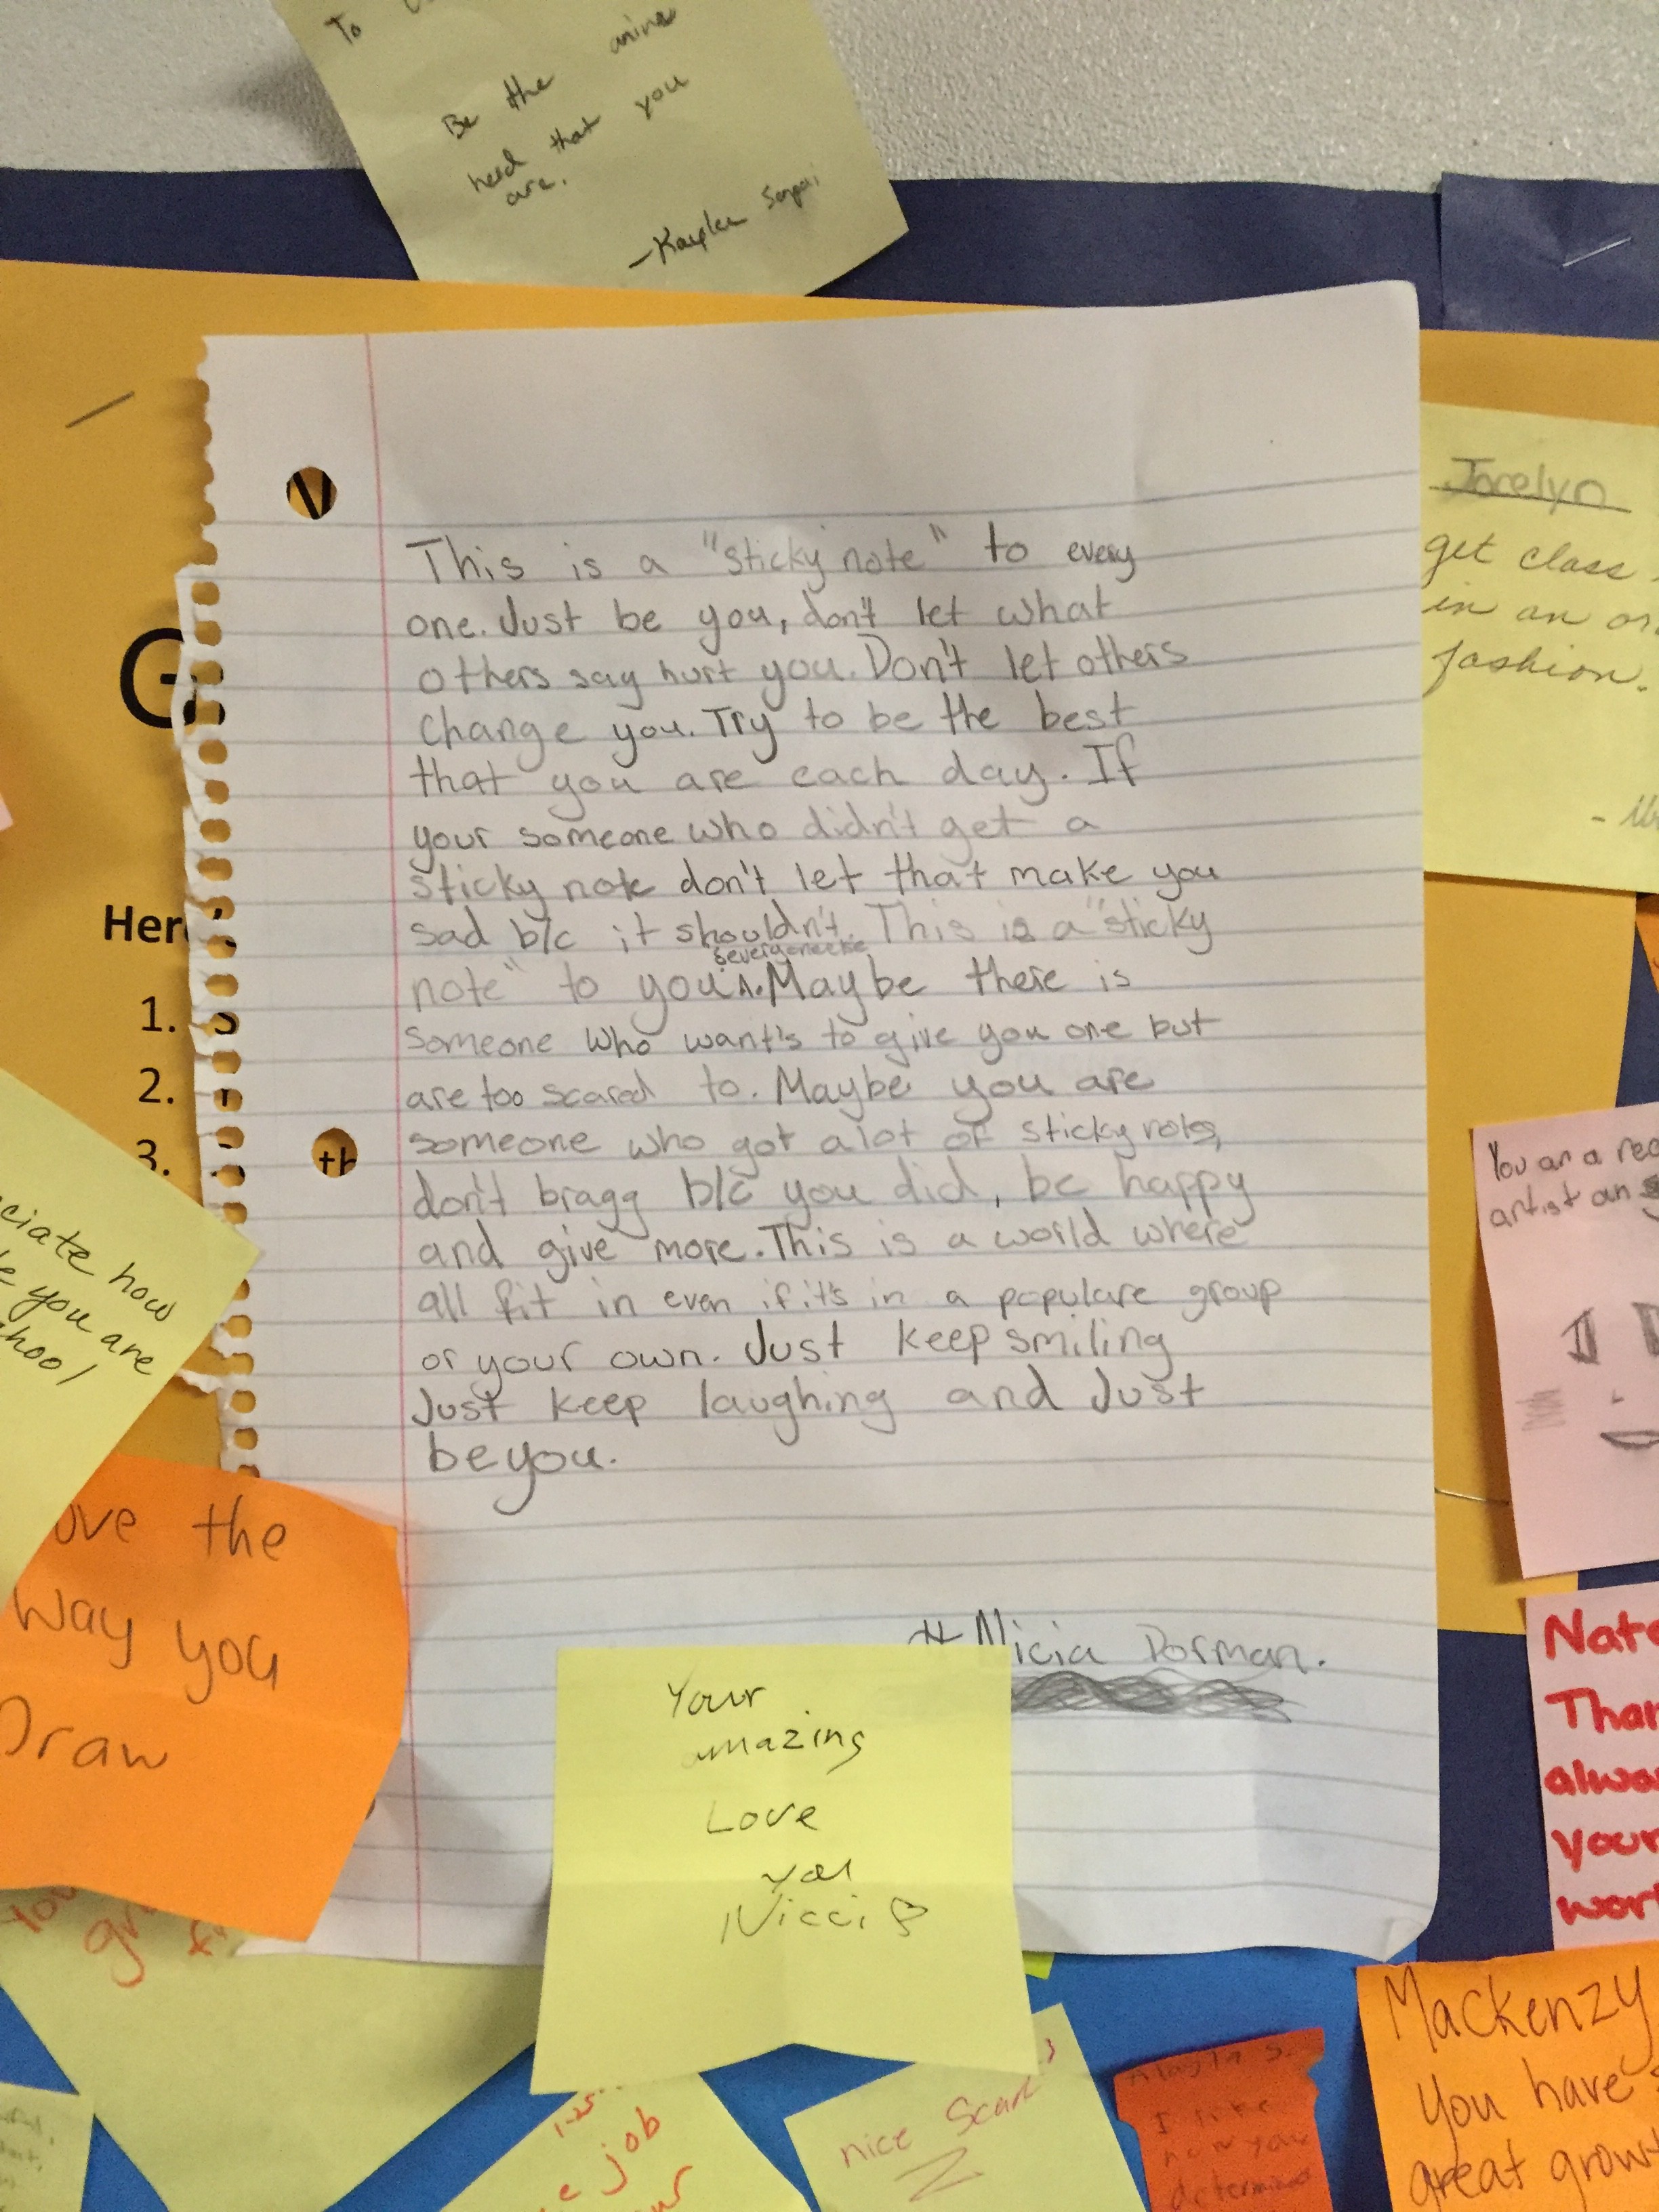 To
Be the anime
nerd that you
are.
This is a "sticky note" to every
one. Just be you, don't let what
others say hurt you. Don't let others
change you. Try to be the best
that you are each day. If
your someone who didn't get a
sticky note don't let that make you
sad b/c it shouldn't. This is a "sticky
& everyone else
note" to you ʌ. Maybe there is
someone who want's to give you one but
are too scared to. Maybe you are
someone who got alot of sticky notes,
don't bragg b/c you did, be happy
and give more. This is a world where
all fit in even if it's in a populare group
or your own. Just keep smiling
Just keep laughing and Just
be you.
#Alicia Dorman.
Your
amazing
Love
you
Nicci
G
Her
1.
2.
3.
th
Jocelyn
get class
in an
fashion.
ciate how
you are
hool
ove the
way you
Draw
You are a
artist an
Nate
Than
alwa
your
wor
Mackenzy
You have
great grow
nice Scarf
1-25
job
Alayla S.
I like
how you
determine